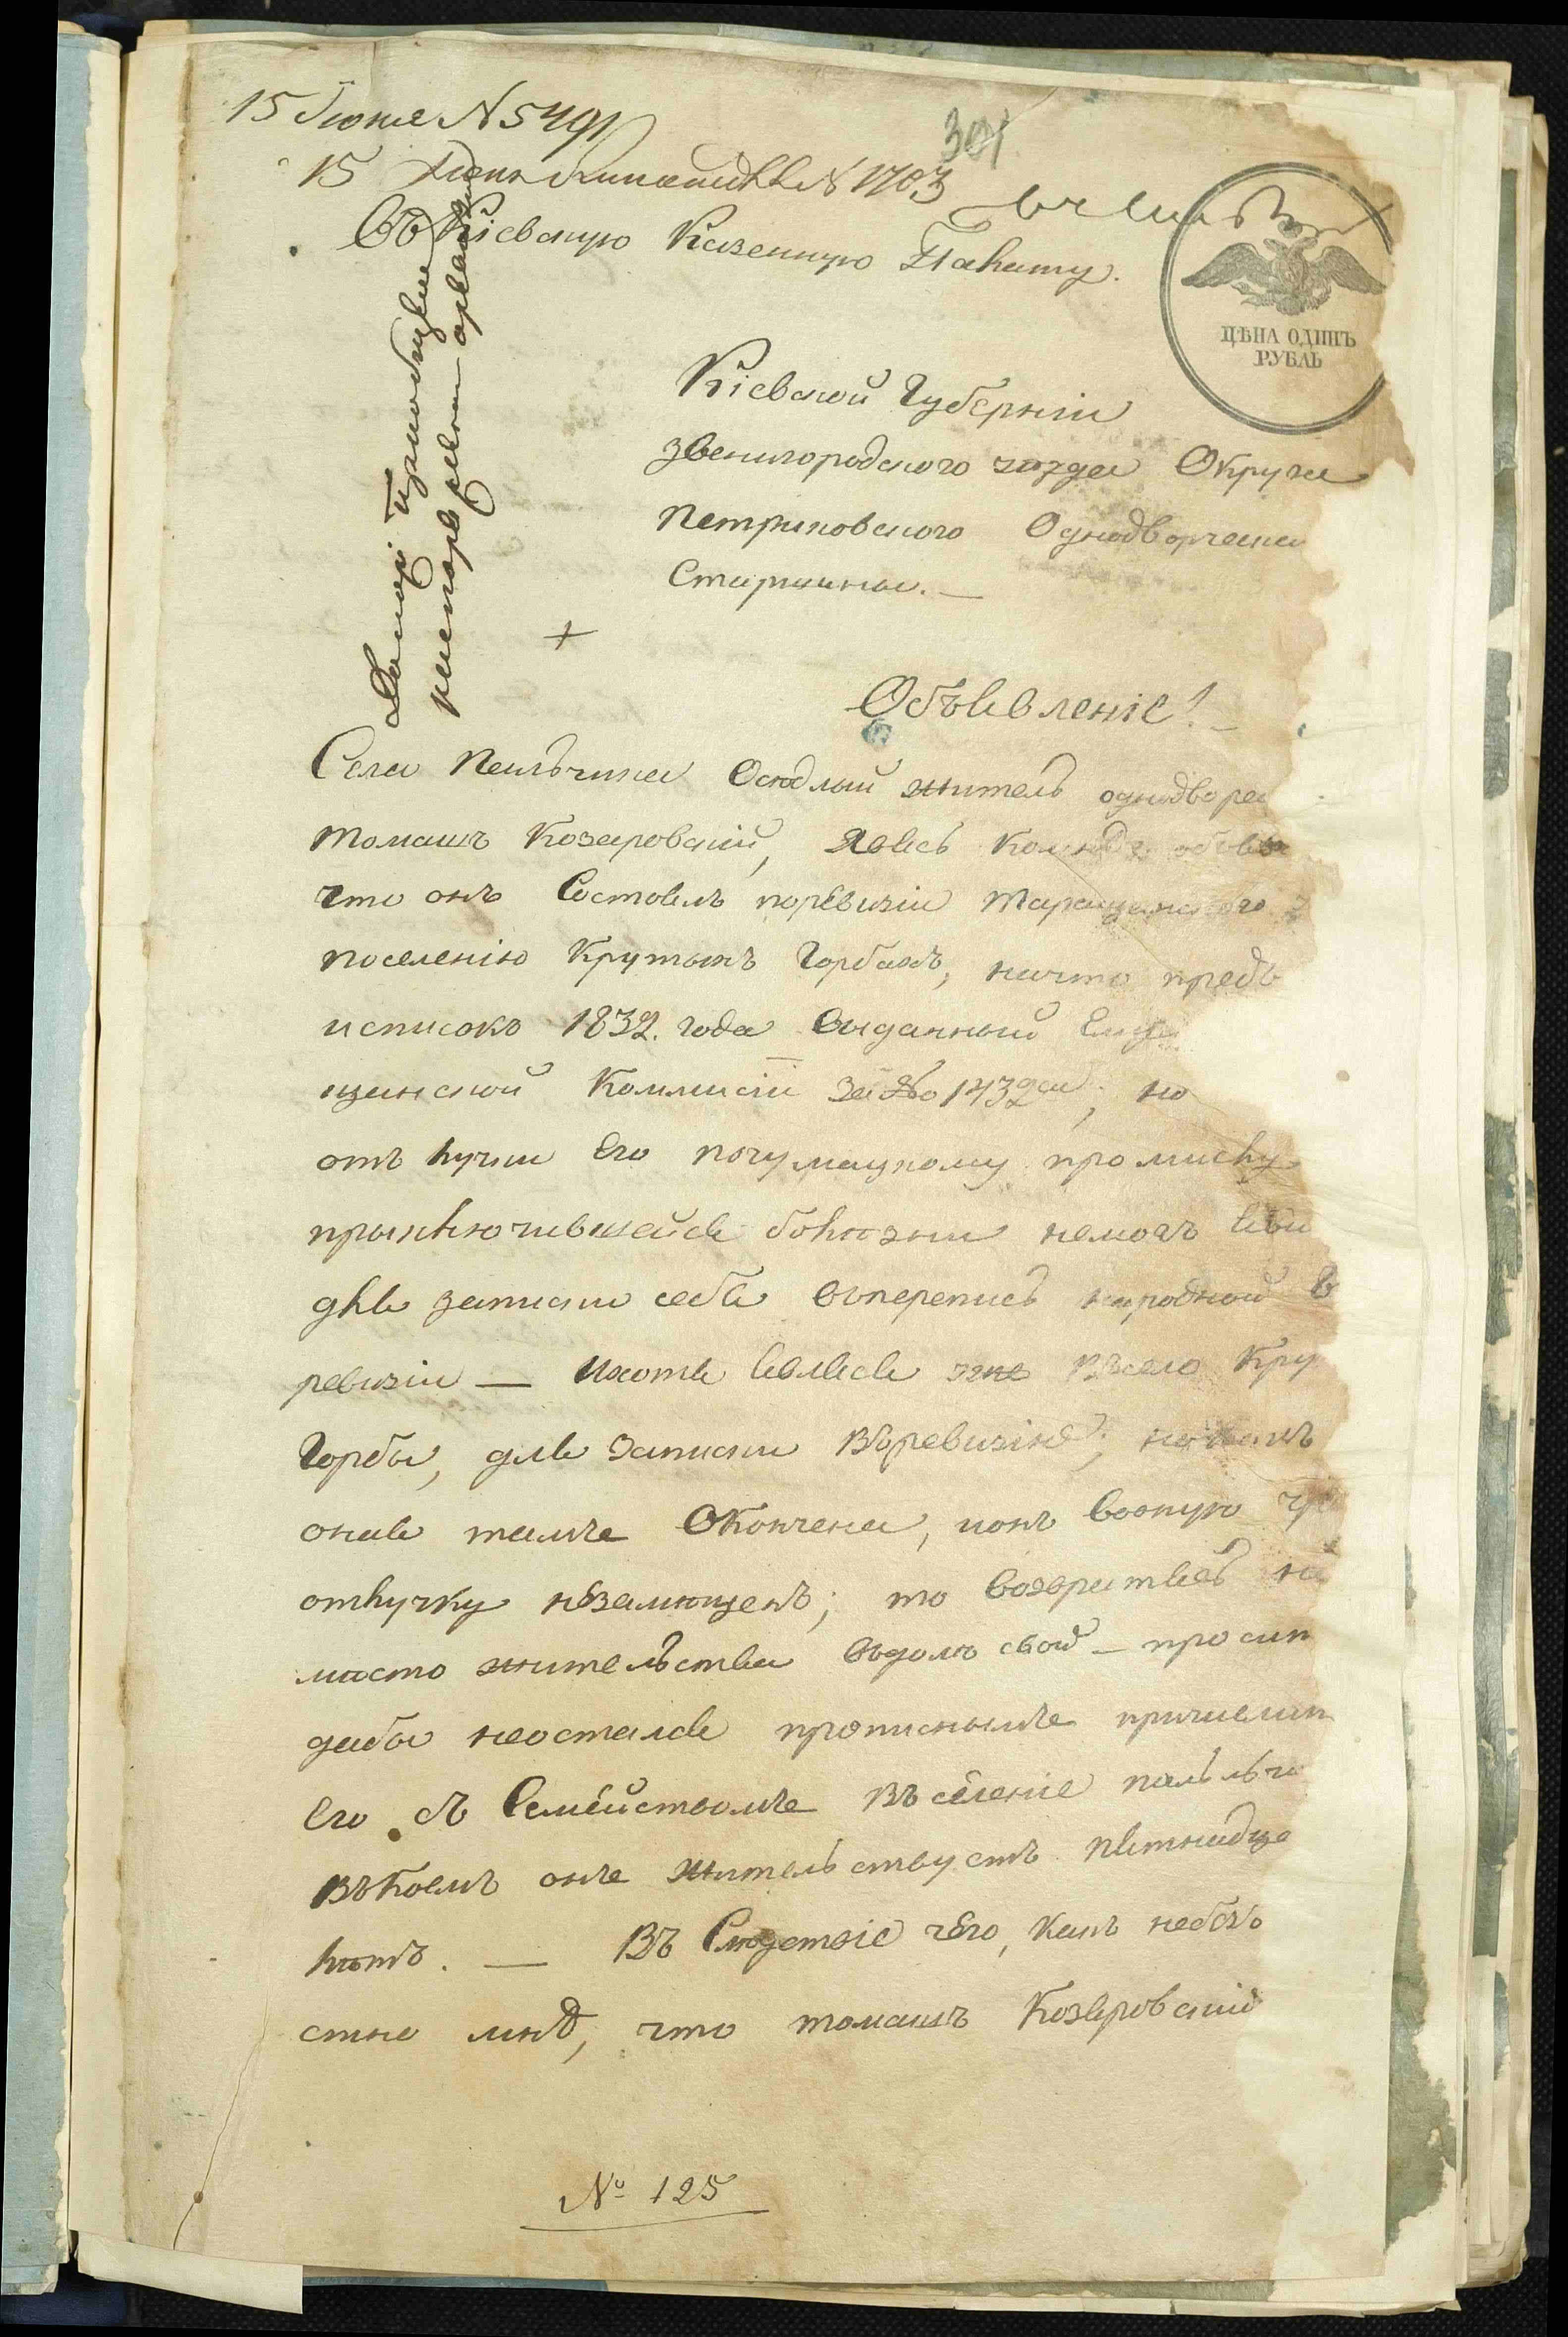 15 Іюня N 5491
15 N 1703
301
Въ Кіевскую Казенную Палату.
ЦѢНА ОДИНЪ
РУБЛЬ
Кіевской Губерніи
Звенигородского уѣзда Округа
Петриковского Однодворческа
Старшины. —
Объявленіе! —
Села Пальчика Осѣдлый житель однодворец
Томашъ Козаровскій, явясь комнѣ объяв
что онъ Состоялъ поревизіи Таращанского
поселенію Крутыхъ Горбахъ, начто предъ
исписокъ 1832. года выданный Ему
щанской Коммисіи За № 1432ъ; но
отъ лучки Его почумацкому промислу
приключившейся болѣзни немогъ яви
для записки себя въперепись народной в
ревизіи — Ихотя явлвся въсело Кру
Горбы, для записки въревизію;
оная тамъ Окончена, ионъ
отлучку незамѣщенъ; то возвратясь на
мѣсто жительства въдомъ свой — просит
дабы неостался прописнымъ причислит
его съ Семействомъ въ селеніе пальчи
въкоемъ онъ жительствуетъ пятнадца
лѣтъ. — Въ Слѣдствіе чего, какъ небезъ
стно мнѣ, что томашъ Козаровскій
№ 125